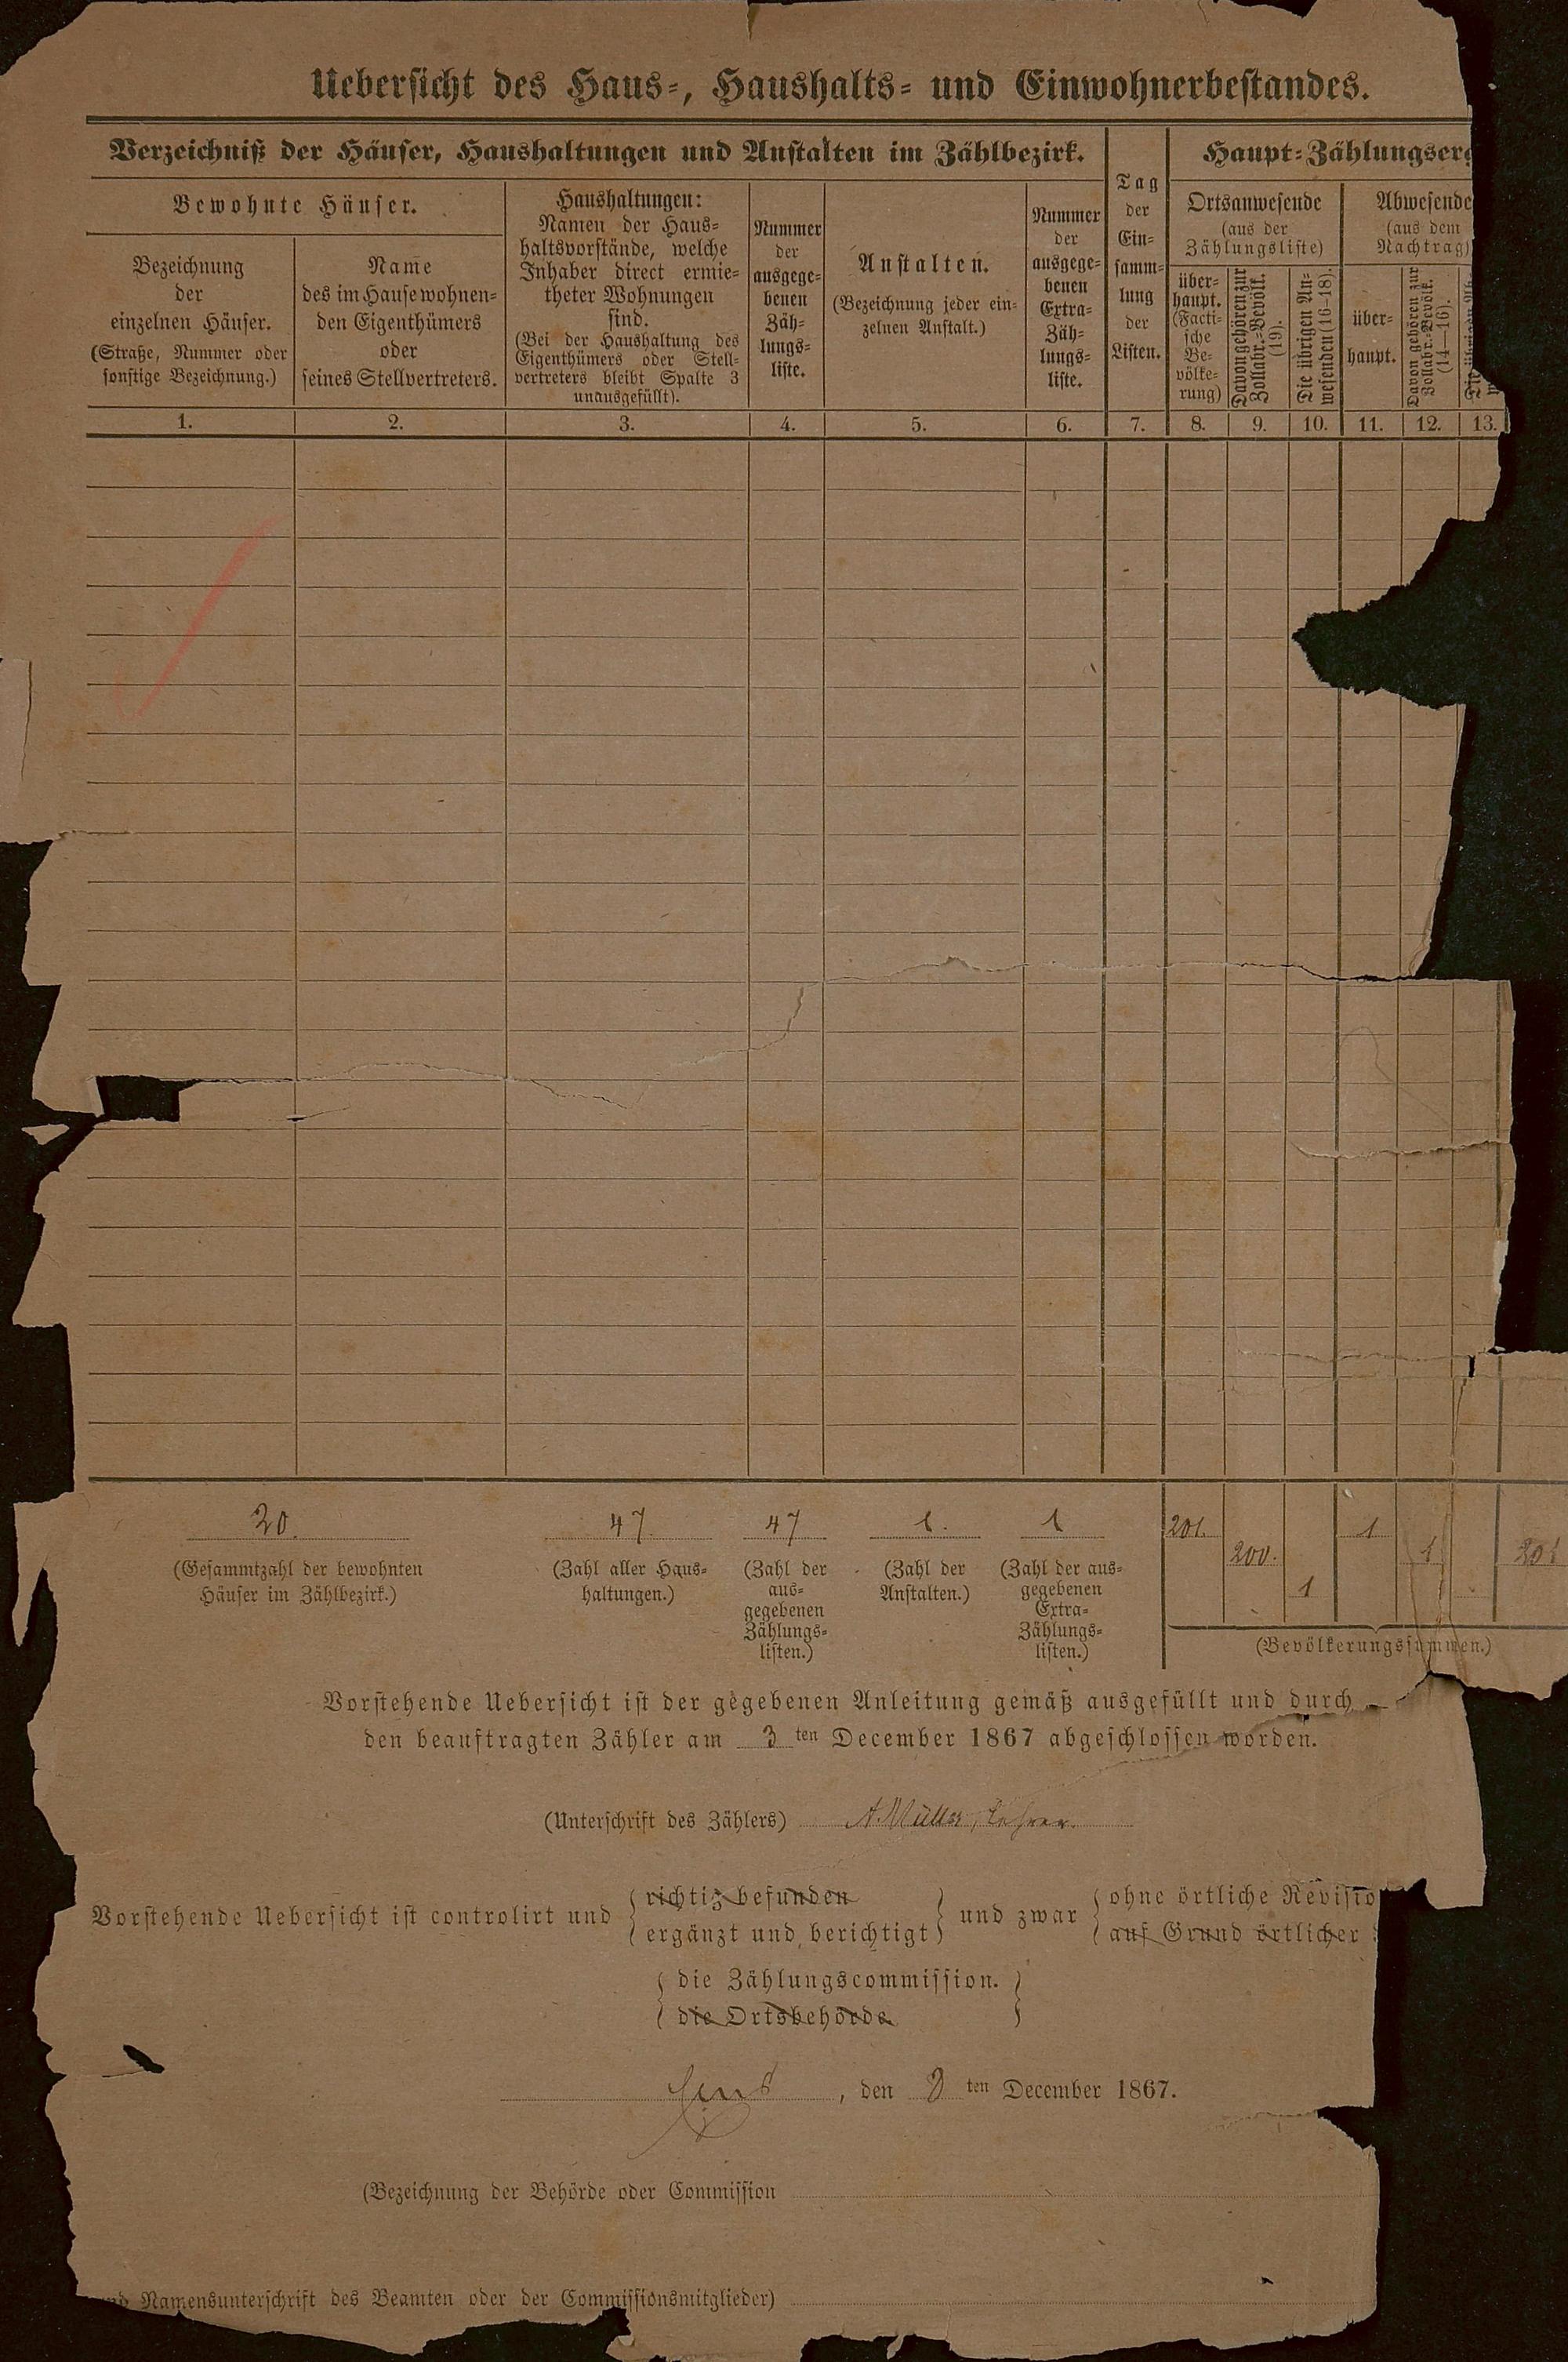 Uebersicht des Haus-, Haushalts- und Einwohnerbestandes.
Verzeichniß der Häuser, Haushaltungen und Anstalten im Zählbezirk.
Bewohnte Häuser.
Bezeichnung
der
einzelnen Häuser.
(Straße, Nummer oder
sonstige Bezeichnung.)
Name
des im Hause wohnen-
den Eigenthümers
oder
seines Stellvertreters.
Haushaltungen:
Namen der Haus-
haltsvorstände, welche
Inhaber direct ermie-
theter Wohnungen
sind.
(Bei der Haushaltung des
Eigenthümers oder Stell-
vertreters bleibt Spalte 3
unausgefüllt).
Nummer
der
ausgege-
benen
Zäh-
lungs-
liste.
Anstalten.
(Bezeichnung jeder ein-
zelnen Anstalt.)
Nummer
der
ausgege-
benen
Extra-
Zäh-
lungs-
liste.
Tag
der
Ein-
samm-
lung
der
Listen.
Haupt-Zählungserg
Ortsanwesende
(aus der
Zählungsliste)
über-
haupt.
(Facti-
sche
Be-
völke-
rung)
Davon gehören zur
Zollabr.-Bevölk.
(19).
Die übrigen An-
wesenden (16–18).
Abwesende
(aus dem
Nachtrag)
über-
haupt.
Davon gehören zur
Zollabr.-Bevölk.
(14–16).
Die übrigen Ab-
1. 2. 3. 4. 5. 6. 7. 8. 9. 10. 11. 12. 13.
20. 47. 47 1. 1 201. 1
200. 1 201
1
(Gesammtzahl der bewohnten
Häuser im Zählbezirk.)
(Zahl aller Haus-
haltungen.)
(Zahl der
aus-
gegebenen
Zählungs-
listen.)
(Zahl der
Anstalten.)
(Zahl der aus-
gegebenen
Extra-
Zählungs-
listen.)
(Bevölkerungssummen.)
Vorstehende Uebersicht ist der gegebenen Anleitung gemäß ausgefüllt und durch
den beauftragten Zähler am 3 ten December 1867 abgeschlossen worden.
(Unterschrift des Zählers) A. Müller, Lehrer.
Vorstehende Uebersicht ist controlirt und
richtig befunden
ergänzt und berichtigt
und zwar
ohne örtliche Revisio
auf Grund örtlicher
die Zählungscommission.
die Ortsbehörde.
, den 9 ten December 1867.
(Bezeichnung der Behörde oder Commission
und Namensunterschrift des Beamten oder der Commissionsmitglieder)